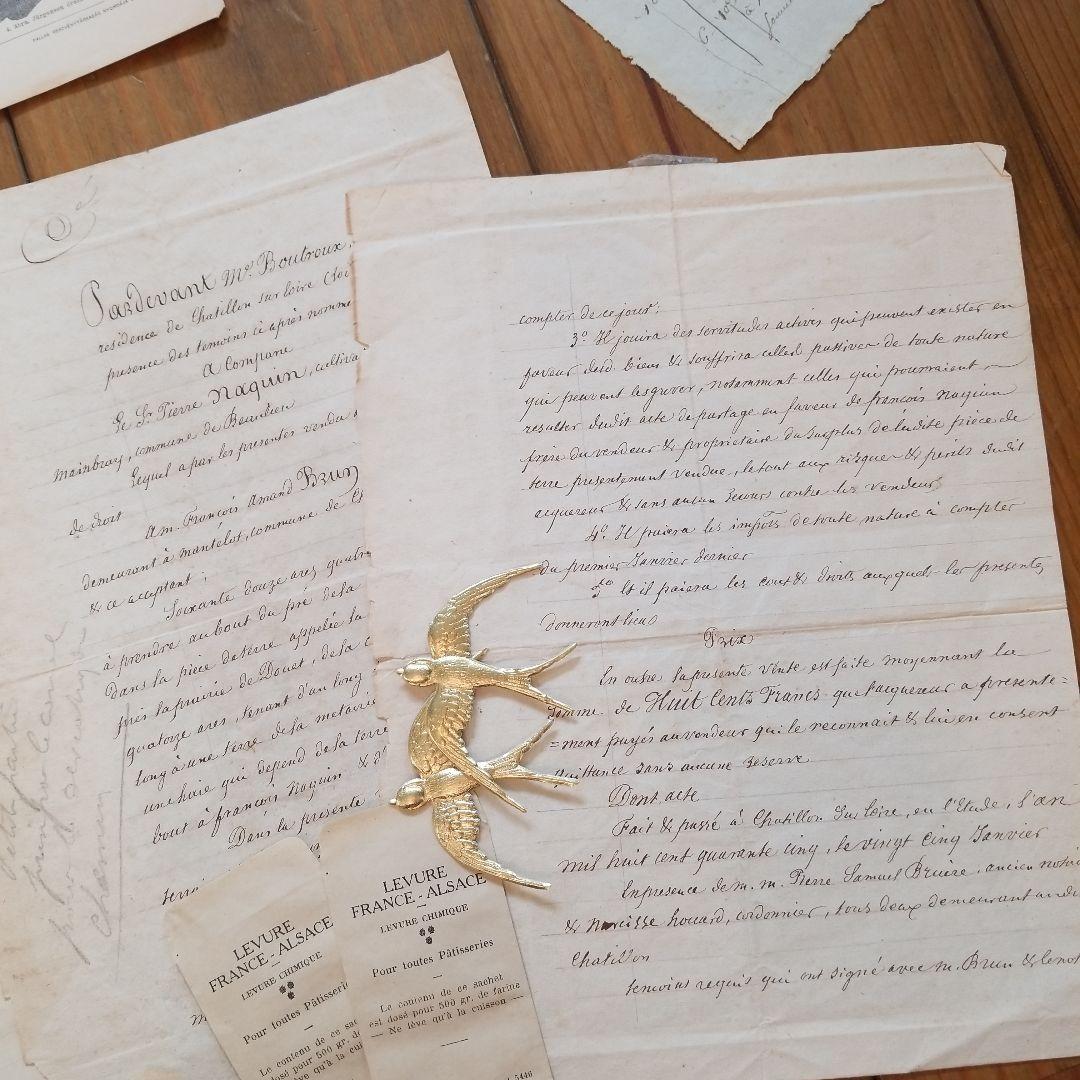 Pardevant Me. Boutroux,
résidence de Chatillon sur loire (Loi
présence des témoins ci après nommé
a Comparu
Le Sr. Pierre Naquin, cultiva
mainbray, commune de Beaulieu
Lequel a par les présentes vendu
de droit
a m. François Amand Brun
demeurant à mantelot, commune de
& ce acceptant ;
Soixante douze ares quatr
à prendre au bout du pré de la
dans la pièce de terre appelée la
près la prairie de Douet, de la
quatorze ares, tenant d'un long
long à une terre de la métairie
une haie qui dépend de la terre
bout à françois Naquin & d'
Dans la présente
compter de ce jour ;
3o. Il jouira des servitudes actives qui peuvent exister en
faveur desd. biens & souffrira celles passives de toute nature
qui peuvent les grever, notamment celles qui pourraient
résulter dudit acte de partage en faveur de françois Naquin
frère du vendeur & propriétaire du surplus de ladite pièce de
terre présentement vendue, le tout aux risques & périls dudit
acquéreur & sans aucun recours contre les vendeurs
4o. Il paiera les impôts de toute nature à compter
du premier Janvier dernier
5o Et il paiera les cout & droits auxquels les présentes
donneront lieu
Prix
En outre la présente vente est faite moyennant la
somme de Huit Cents Francs que l'acquéreur a présente=
=ment payés au vendeur qui le reconnait & lui en consent
quittance sans aucune réserve
Dont acte
Fait & passé à Chatillon sur loire, en l'Etude, l'an
mil huit cent quarante cinq, le vingt cinq Janvier
En présence de m. m. Pierre Samuel Bruère, ancien notaire
& Narcisse houard, cordonnier, tous deux demeurant audit
Chatillon
témoins requis qui ont signé avec m. Brun & le not
LEVURE
FRANCE-ALSACE
LEVURE CHIMIQUE
Pour toutes Pâtisseries
Le contenu de ce sac
est dosé pour 500 gr. de
— Ne lève qu'à la cui
LEVURE
FRANCE-ALSACE
LEVURE CHIMIQUE
Pour toutes Pâtisseries
Le contenu de ce sachet
est dosé pour 500 gr. de farine
— Ne lève qu'à la cuisson —
5446